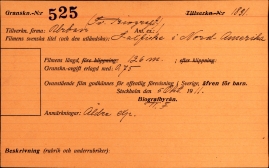 Gransknings-N:r 525 Tillverkn.-N:r 1891
Tillverkn. firma: Urban
Filmens svenska titel (och den utländska): Laxfiske i Nord Amerika
Filmens längd, före klippning: 125 m.; efter klippning:
Gransknings-avgift erlagd med 0.75
Ovanstående film godkännes för offentlig förevisning i Sverige, även för barn.
Stockholm den 5 Okt. 1911.
Biografbyrån.
Anmärkningar: Äldre
Beskrivning (rubrik och underrubriker):